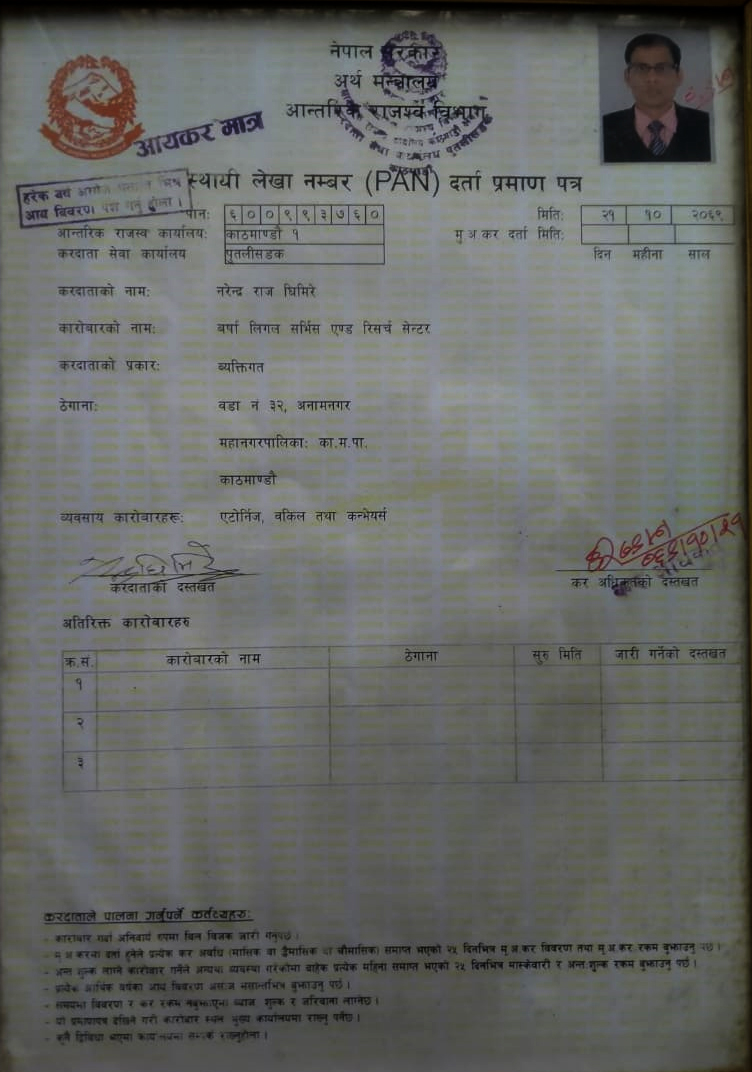 नेपाल सरकार
अर्थ मन्त्रालय
आन्तरिक राजश्व विभाग
आयकर मात्र
स्थायी लेखा नम्बर (PAN) दर्ता प्रमाण पत्र
हरेक वर्ष
आय विवरण पेश गर्नु होला ।
पान: ६ ० ० ९ ९ ३ ७ ६ ०
मिति: २१ १० २०६९
आन्तरिक राजस्व कार्यालय: काठमाण्डौ १
मु अ कर दर्ता मिति:
करदाता सेवा कार्यालय पुतलीसडक
दिन महीना साल
करदाताको नाम: नरेन्द्र राज घिमिरे
कारोबारको नाम: बर्षा लिगल सर्भिस एण्ड रिसर्च सेन्टर
करदाताको प्रकार: व्यक्तिगत
ठेगाना: वडा नं ३२, अनामनगर
महानगरपालिका: का.म.पा.
काठमाण्डौ
व्यवसाय कारोबारहरू: एटोर्निज, वकिल तथा कन्भेयर्स
करदाताको दस्तखत
कर अधिकृतको दस्तखत
अतिरिक्त कारोबारहरु
क्र.सं. कारोबारको नाम ठेगाना सुरु मिति जारी गर्नेको दस्तखत
१
२
३
करदाताले पालना गर्नुपर्ने कर्तव्यहरु:
- कारोबार गर्दा अनिवार्य रुपमा बिल बिजक जारी गर्नुपर्छ ।
- मू अ करमा दर्ता हुनेले प्रत्येक कर अवधि (मासिक वा द्वैमासिक वा चौमासिक) समाप्त भएको २५ दिनभित्र मू अ कर विवरण तथा मू अ कर रकम बुझाउनु पर्छ ।
- अन्तःशुल्क लाग्ने कारोबार गर्नेले अन्यथा व्यवस्था गरेकोमा बाहेक प्रत्येक महिना समाप्त भएको २५ दिनभित्र मास्केवारी र अन्तःशुल्क रकम बुझाउनु पर्छ ।
- प्रत्येक आर्थिक वर्षको आय विवरण असोज मसान्तभित्र बुझाउनु पर्छ ।
- समयमा विवरण र कर रकम नबुझाएमा ब्याज शुल्क र जरिवाना लाग्नेछ ।
- यो प्रमाणपत्र देखिने गरी कारोबार स्थल मुख्य कार्यालयमा राख्नु पर्नेछ ।
- कुनै द्विविधा भएमा कार्यालयमा सम्पर्क राख्नुहोला ।